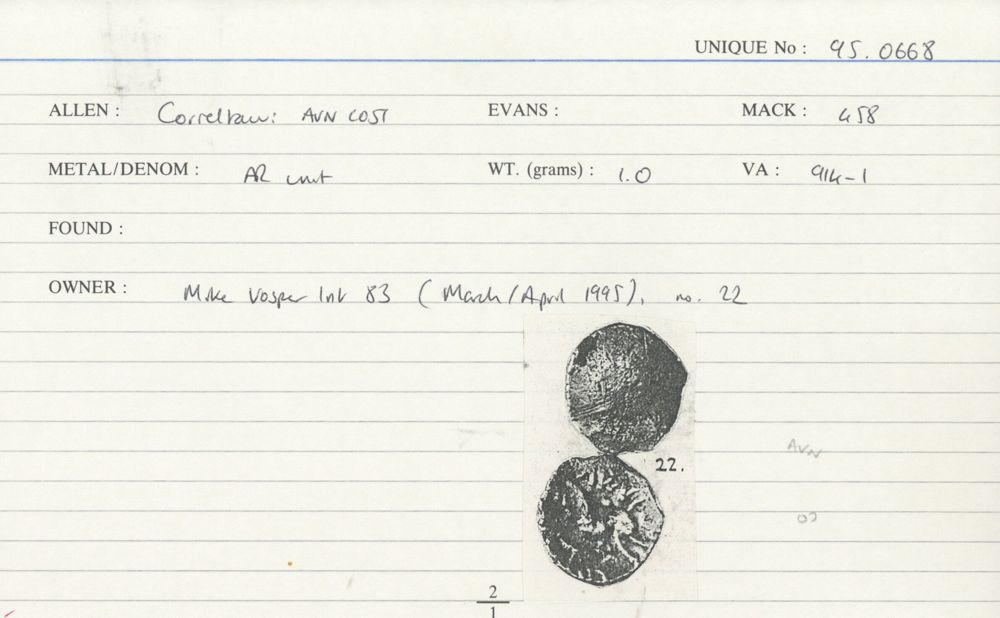 UNIQUE No : 95.0668
ALLEN : Corieltauvi: AVN COST EVANS : MACK : 458
METAL/DENOM : AR unit WT. (grams) : 1.0 VA : 914-1
FOUND :
OWNER : Mike Vosper list 83 (March/April 1995), no. 22
AVN
22.
2
1